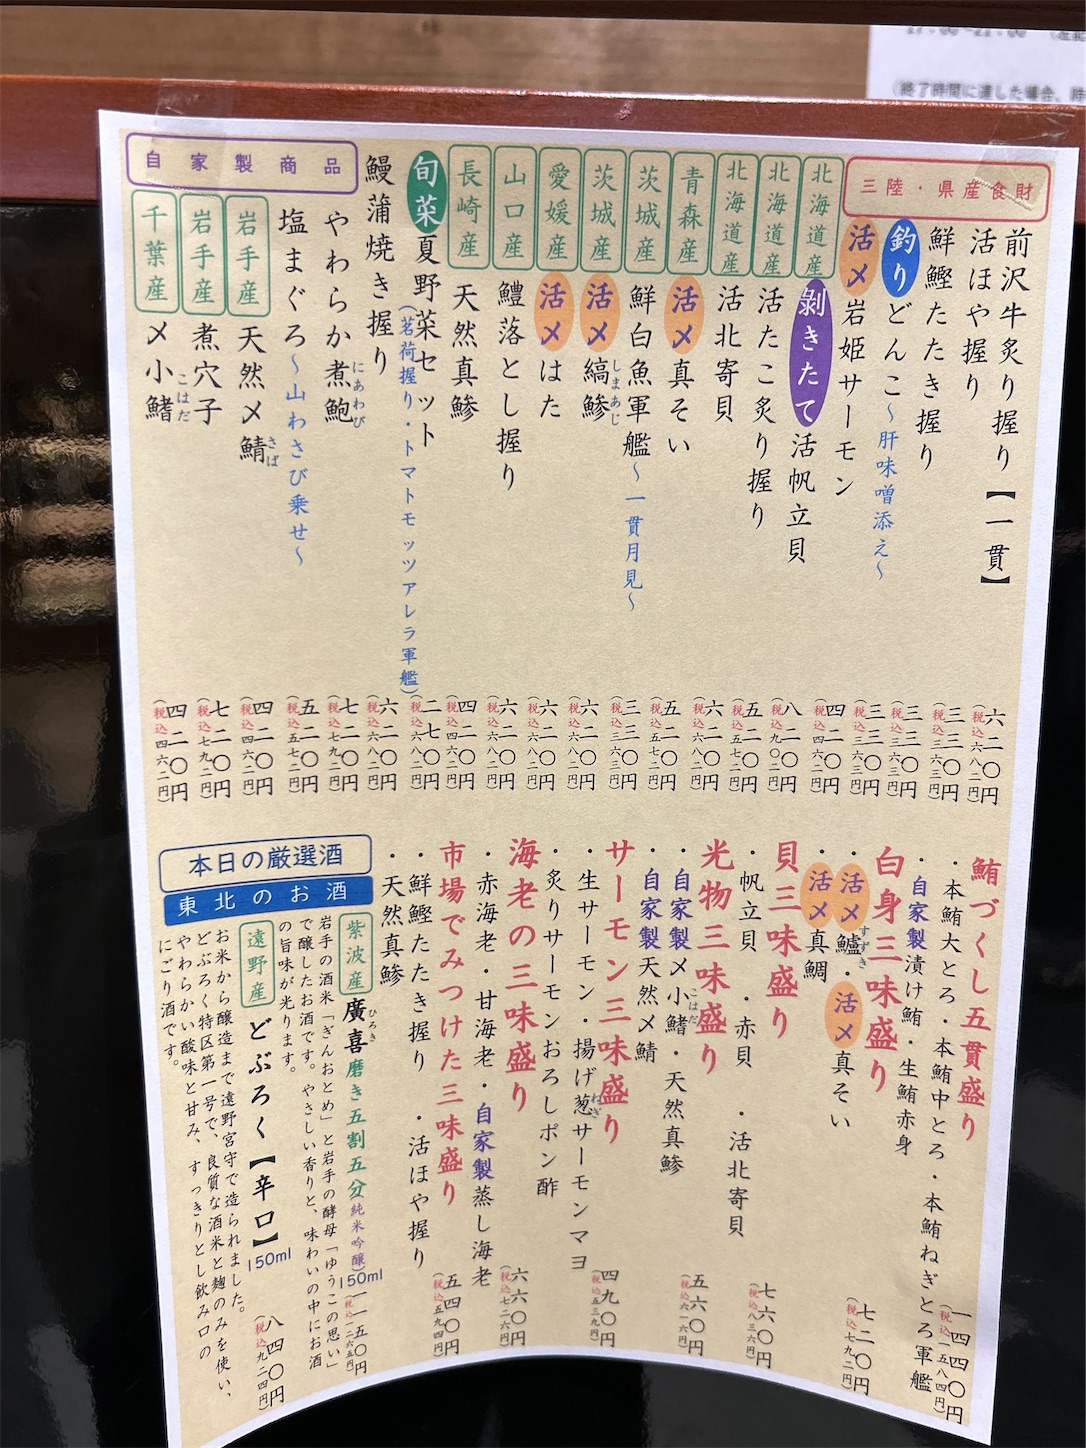 17:00~21:00
(終了時間に達した場合、時
三陸・県産食財
前沢牛炙り握り【一貫】 六二〇円(税込六八二円)
活ほや握り 三三〇円(税込三六三円)
鮮鰹たたき握り 三三〇円(税込三六三円)
釣り どんこ~肝味噌添え~ 三三〇円(税込三六三円)
活〆 岩姫サーモン 四二〇円(税込四六二円)
北海道産 剝きたて 活帆立貝 八二〇円(税込九〇二円)
北海道産 活たこ炙り握り 五二〇円(税込五七二円)
北海道産 活北寄貝 六二〇円(税込六八二円)
青森産 活〆 真そい 五二〇円(税込五七二円)
茨城産 鮮白魚軍艦~一貫月見~ 三三〇円(税込三六三円)
茨城産 活〆 縞鯵 しまあじ 六二〇円(税込六八二円)
愛媛産 活〆 はた 六二〇円(税込六八二円)
山口産 鱧落とし握り 六二〇円(税込六八二円)
長崎産 天然真鯵 四二〇円(税込四六二円)
旬菜 夏野菜セット
(茗荷握り・トマトモッツアレラ軍艦)
鰻蒲焼き握り 六二〇円(税込六八二円)
自家製商品
やわらか煮鮑 にあわび 七二〇円(税込七九二円)
塩まぐろ~山わさび乗せ~ 五二〇円(税込五七二円)
岩手産 天然〆鯖 さば 四二〇円(税込四六二円)
岩手産 煮穴子 七二〇円(税込七九二円)
千葉産 〆小鰭 こはだ 四二〇円(税込四六二円)
鮪づくし五貫盛り
・本鮪大とろ・本鮪中とろ・本鮪ねぎとろ軍艦
・自家製漬け鮪・生鮪赤身 一四四〇円(税込一五八四円)
白身三味盛り
・活〆鱸 すずき・活〆真そい
・活〆真鯛 七二〇円(税込七九二円)
貝三味盛り
・帆立貝 ・赤貝 ・活北寄貝 七六〇円(税込八三六円)
光物三味盛り
・自家製〆小鰭 こはだ・天然真鯵
・自家製天然〆鯖 五六〇円(税込六一六円)
サーモン三味盛り
・生サーモン・揚げ葱 ねぎ サーモンマヨ
・炙りサーモンおろしポン酢 四九〇円(税込五三九円)
海老の三味盛り
・赤海老・甘海老・自家製蒸し海老 六六〇円(税込七二六円)
市場でみつけた三味盛り
・鮮鰹たたき握り ・活ほや握り
・天然真鯵 五四〇円(税込五九四円)
本日の厳選酒
東北のお酒
紫波産 廣喜 ひろき 磨き五割五分(純米吟醸)150ml 一一五〇円(税込一二六五円)
岩手の酒米「ぎんおとめ」と岩手の酵母「ゆうこの思い」
で醸したお酒です。やさしい香りと、味わいの中にお酒
の旨味が光ります。
遠野産 どぶろく【辛口】150ml 八四〇円(税込九二四円)
お米から醸造まで遠野宮守で造られました。
どぶろく特区第一号で、良質な酒米と麹のみを使い、
やわらかい酸味と甘み、すっきりとし飲み口の
にごり酒です。